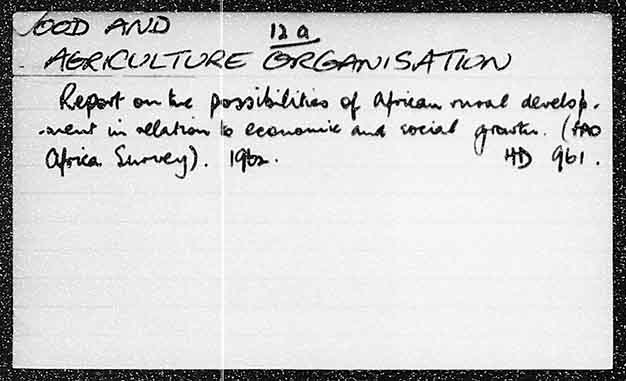 FOOD AND 12a
AGRICULTURE ORGANISATION
Report on the possibilities of African rural develop-
-ment in relation to economic and social growth. (FAO
Africa Survey). 1962. HD 961.